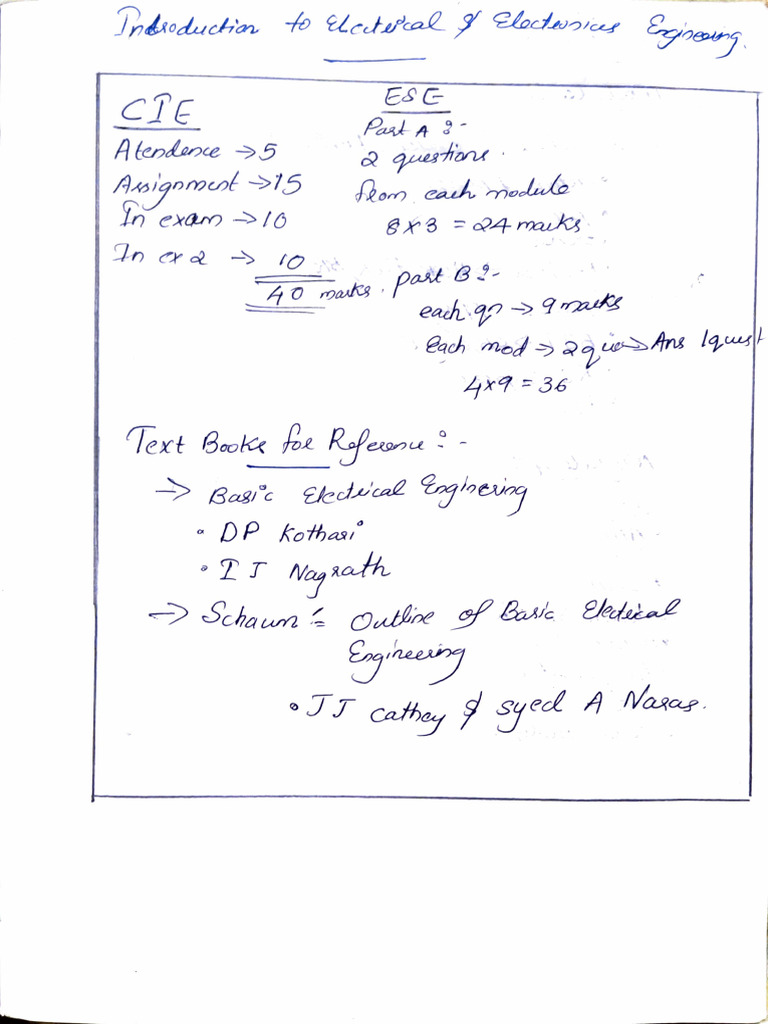 Introduction to Electrical & Electronics Engineering.
CIE
Atendence → 5
Assignment → 15
In exam → 10
In ex 2 → 10
40 marks.
ESE
Part A :-
2 questions.
from each module
8 x 3 = 24 marks
Part B :-
each qn → 9 marks
Each mod → 2 que → Ans 1 quest
4 x 9 = 36
Text Books for Reference :-
→ Basic Electrical Enginering
• DP Kothari
• I J Nagrath
→ Schaum's Outline of Basic Electrical
Engineering
• JJ Cathey & Syed A Nasas.